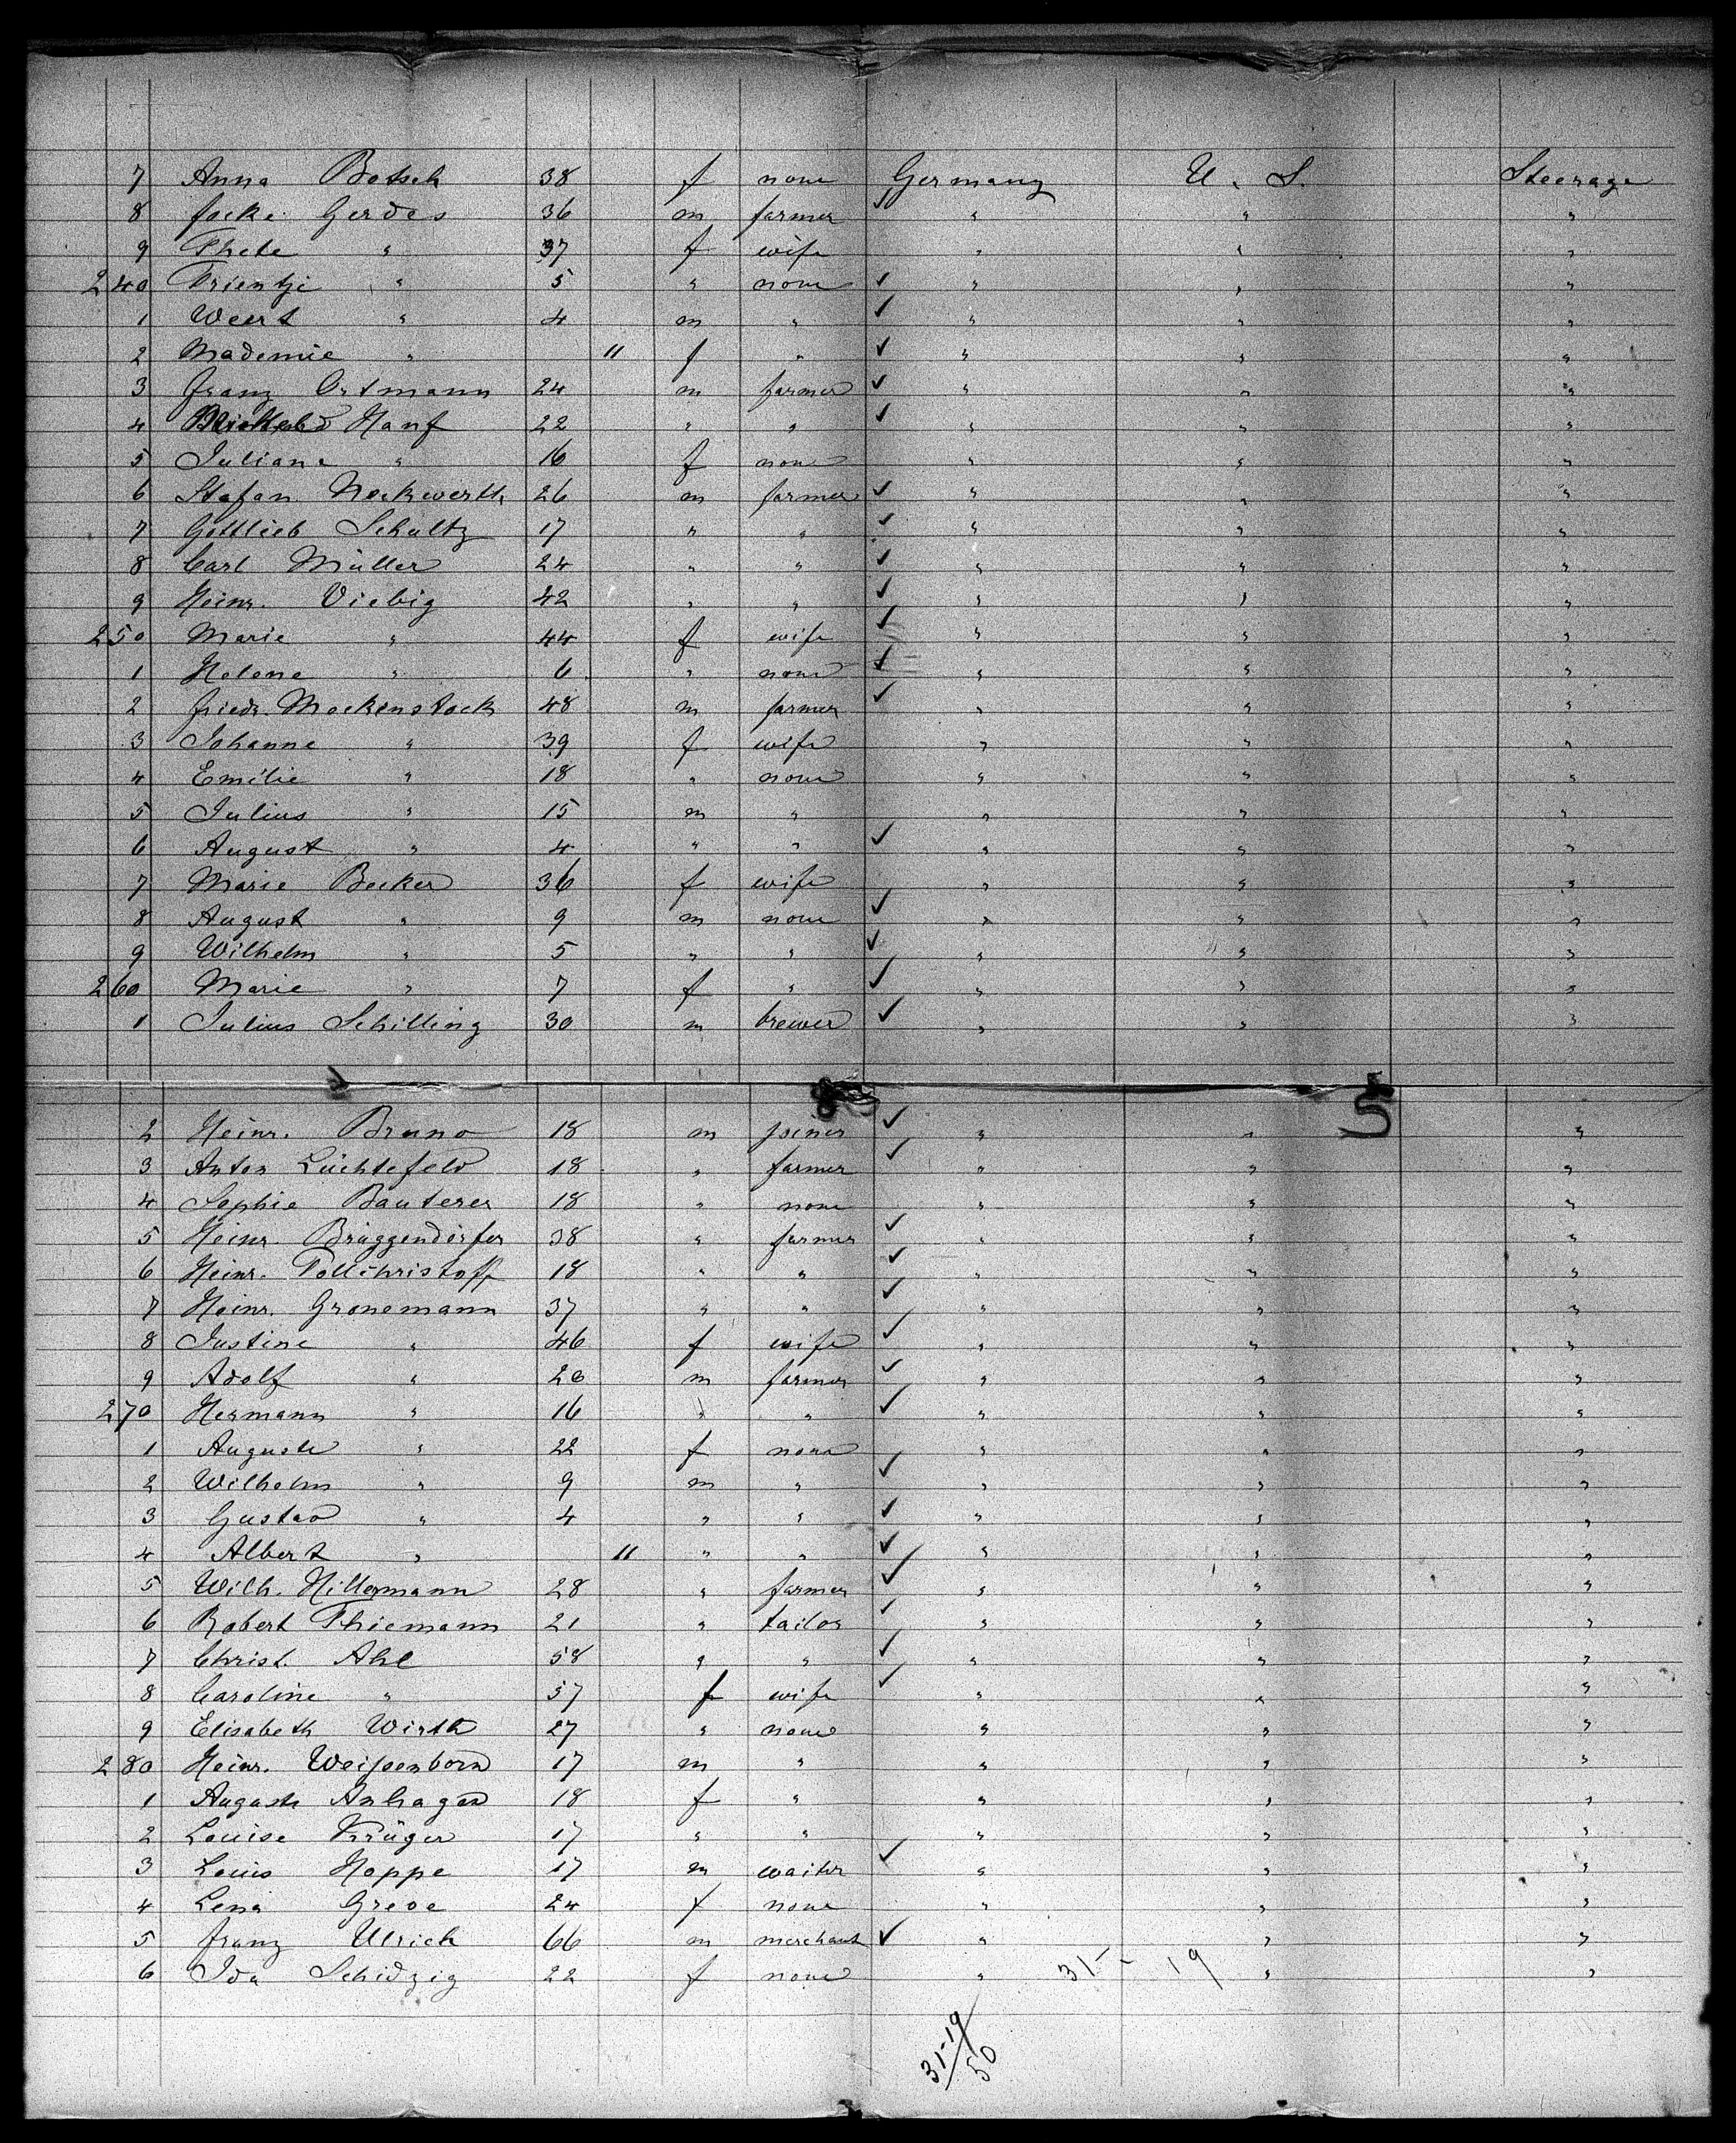 7 Anna Botsch 38 f none Germany U. S. Steerage
8 Focke Gerdes 36 m farmer " " "
9 Thete " 37 f wife " " "
240 Trientje " 5 " none ✓ " " "
1 Weert " 4 m " ✓ " " "
2 Mademie " 11 f " ✓ " " "
3 Franz Ortmann 24 m farmer ✓ " " "
4 Hanf 22 " " ✓ " " "
5 Juliane " 16 f none " " "
6 Stefan Nockwerth 26 m farmer ✓ " " "
7 Gottlieb Schultz 17 " " ✓ " " "
8 Carl Müller 24 " " ✓ " " "
9 Heinr. Viebig 42 " " ✓ " " "
250 Marie " 44 f wife ✓ " " "
1 Helene " 6 " none ✓ " " "
2 Friedr. Mockenstock 48 m farmer ✓ " " "
3 Johanne " 39 f wife " " "
4 Emilie " 18 " none " " "
5 Julius " 15 m " " " "
6 August " 4 " " ✓ " " "
7 Marie Becker 36 f wife " " "
8 August " 9 m none ✓ " " "
9 Wilhelm " 5 " " ✓ " " "
260 Marie " 7 f " ✓ " " "
1 Julius Schilling 30 m brewer ✓ " " "
8 5
2 Heinr. Bruno 18 m joiner ✓ " " "
3 Anton Lüchtefeld 18 " farmer ✓ " " "
4 Sophie Bauterer 18 " none " " "
5 Heinr. Brüggendörfer 38 " farmer ✓ " " "
6 Heinr. Pollchristoff 18 " " ✓ " " "
7 Heinr. Gronemann 37 " " ✓ " " "
8 Justine " 46 f wife ✓ " " "
9 Adolf " 20 m farmer ✓ " " "
270 Hermann " 16 " " ✓ " " "
1 Auguste " 22 f none " " "
2 Wilhelm " 9 m " ✓ " " "
3 Gustav " 4 " " ✓ " " "
4 Albert " 11 " " ✓ " " "
5 Wilh. Hillermann 28 " farmer ✓ " " "
6 Robert Thiemann 21 " tailor ✓ " " "
7 Christ. Ahl 58 " " ✓ " " "
8 Caroline " 57 f wife ✓ " " "
9 Elisabeth Wirth 27 " none " " "
280 Heinr. Weißenborn 17 m " " " "
1 Auguste Anhagen 18 f " " " "
2 Louise Krüger 17 " " " " "
3 Louis Hoppe 17 m waiter ✓ " " "
4 Lena Greve 24 f none " " "
5 Franz Ulrich 66 m merchant ✓ " " "
6 Ida Schidzig 22 f none " 31- 19 " "
31-19
50